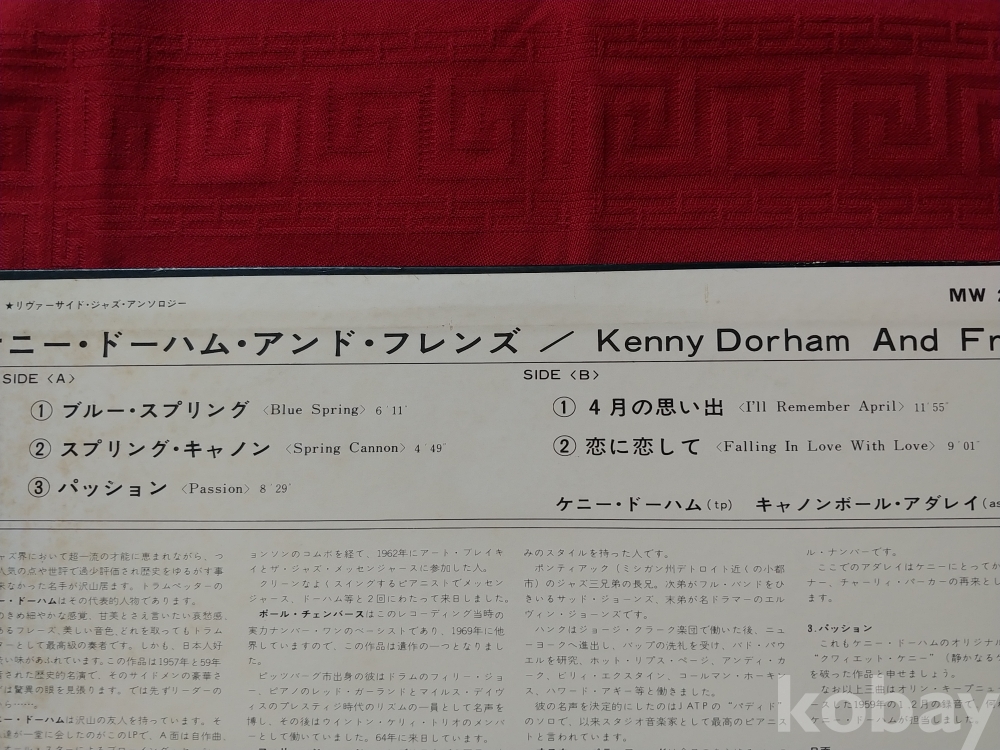 ★リヴァーサイド・ジャズ・アンソロジー
MW
ニー・ドーハム・アンド・フレンズ / Kenny Dorham And Fr
SIDE 〈A〉
① ブルー・スプリング 〈Blue Spring〉 6′11″
② スプリング・キャノン 〈Spring Cannon〉 4′49″
③ パッション 〈Passion〉 8′29″
SIDE 〈B〉
① 4月の思い出 〈I'll Remember April〉 11′55″
② 恋に恋して 〈Falling In Love With Love〉 9′01″
ケニー・ドーハム(tp) キャノンボール・アダレイ(as
ャズ界において超一流の才能に恵まれながら、つ
人気の点や世評で過少評価され歴史をゆるがす事
来なかった名手が沢山居ます。トラムペッターの
ー・ドーハムはその代表的人物であります。
のきめ細やかな感覚、甘美とさえ言いたい哀愁感、
あるフレーズ、美しい音色、どれを取ってもトラム
ーとして最高級の奏者です。しかも、日本人好
い味があふれています。この作品は1957年と59年
された歴史的名演で、そのサイドメンの豪華さ
は驚異の眼を見張ります。では先ずリーダーの
ら……。
ー・ドーハムは沢山の友人を持っています。そ
達が一堂に会したのがこのLPで、A面は自作曲、
ョンソンのコムボを経て、1962年にアート・ブレイキ
イとザ・ジャズ・メッセンジャースに参加した人。
クリーンなよくスイングするピアニストでメッセン
ジャース、ドーハム等と2回にわたって来日しました。
ポール・チェンバースはこのレコーディング当時の
実力ナンバー・ワンのベーシストであり、1969年に他
界していますので、この作品は遺作の一つとなりまし
た。
ピッツバーグ市出身の彼はドラムのフィリー・ジョ
ー、ピアノのレッド・ガーランドとマイルス・デイヴ
ィスのプレスティジ時代のリズムの一員として名声を
博し、その後はウィントン・ケリィ・トリオのメンバ
ーとして働いていました。64年に来日しています。
みのスタイルを持った人です。
ポンティアック(ミシガン州デトロイト近くの小都
市)のジャズ三兄弟の長兄。次弟がフル・バンドをひ
きいるサッド・ジョーンズ、末弟が名ドラマーのエル
ヴィン・ジョーンズです。
ハンクはジョージ・クラーク楽団で働いた後、ニュ
ーヨークへ進出し、バップの洗礼を受け、バド・パウ
エルを研究、ホット・リップス・ページ、アンディ・カ
ーク、ビリィ・エクスタイン、コールマン・ホーキン
ス、ハワード・アギー等と働きました。
彼の名声を決定的にしたのはJATPの"バディド"
のソロで、以来スタジオ音楽家として最高のピアニス
トと言われています。
ル・ナンバーです。
ここでのアダレイはケニーにとってか
ナー、チャーリィ・パーカーの再来とし
ます。
3.パッション
これもケニー・ドーハムのオリジナル
"クワィエット・ケニー"(静かなるケ
を破った作品と申せましょう。
なお以上三曲はオリン・キープニュ
ースした1959年の1、2月の録音で、何
ケニー・ドーハムが担当しました。
B面
kobay